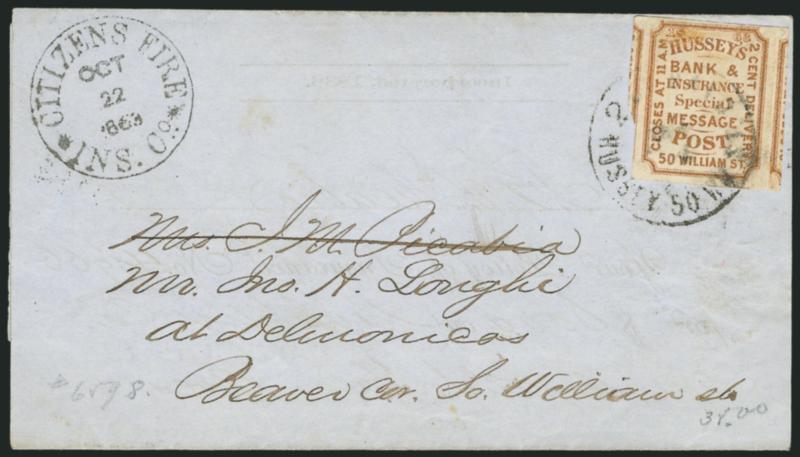 CITIZENS FIRE
OCT
22
1863
* INS. Co. *
CLOSES AT 11 A.M.
HUSSEY'S
BANK &
INSURANCE
Special
MESSAGE
POST
50 WILLIAM ST.
2 CENT DELIVERY
HUSSEY 50 WM
Mrs. J. M. Picabia
Mr. Jno. H. Longhi
at Delmonicos
Beaver Cor. So. William st.
6598.
38.00